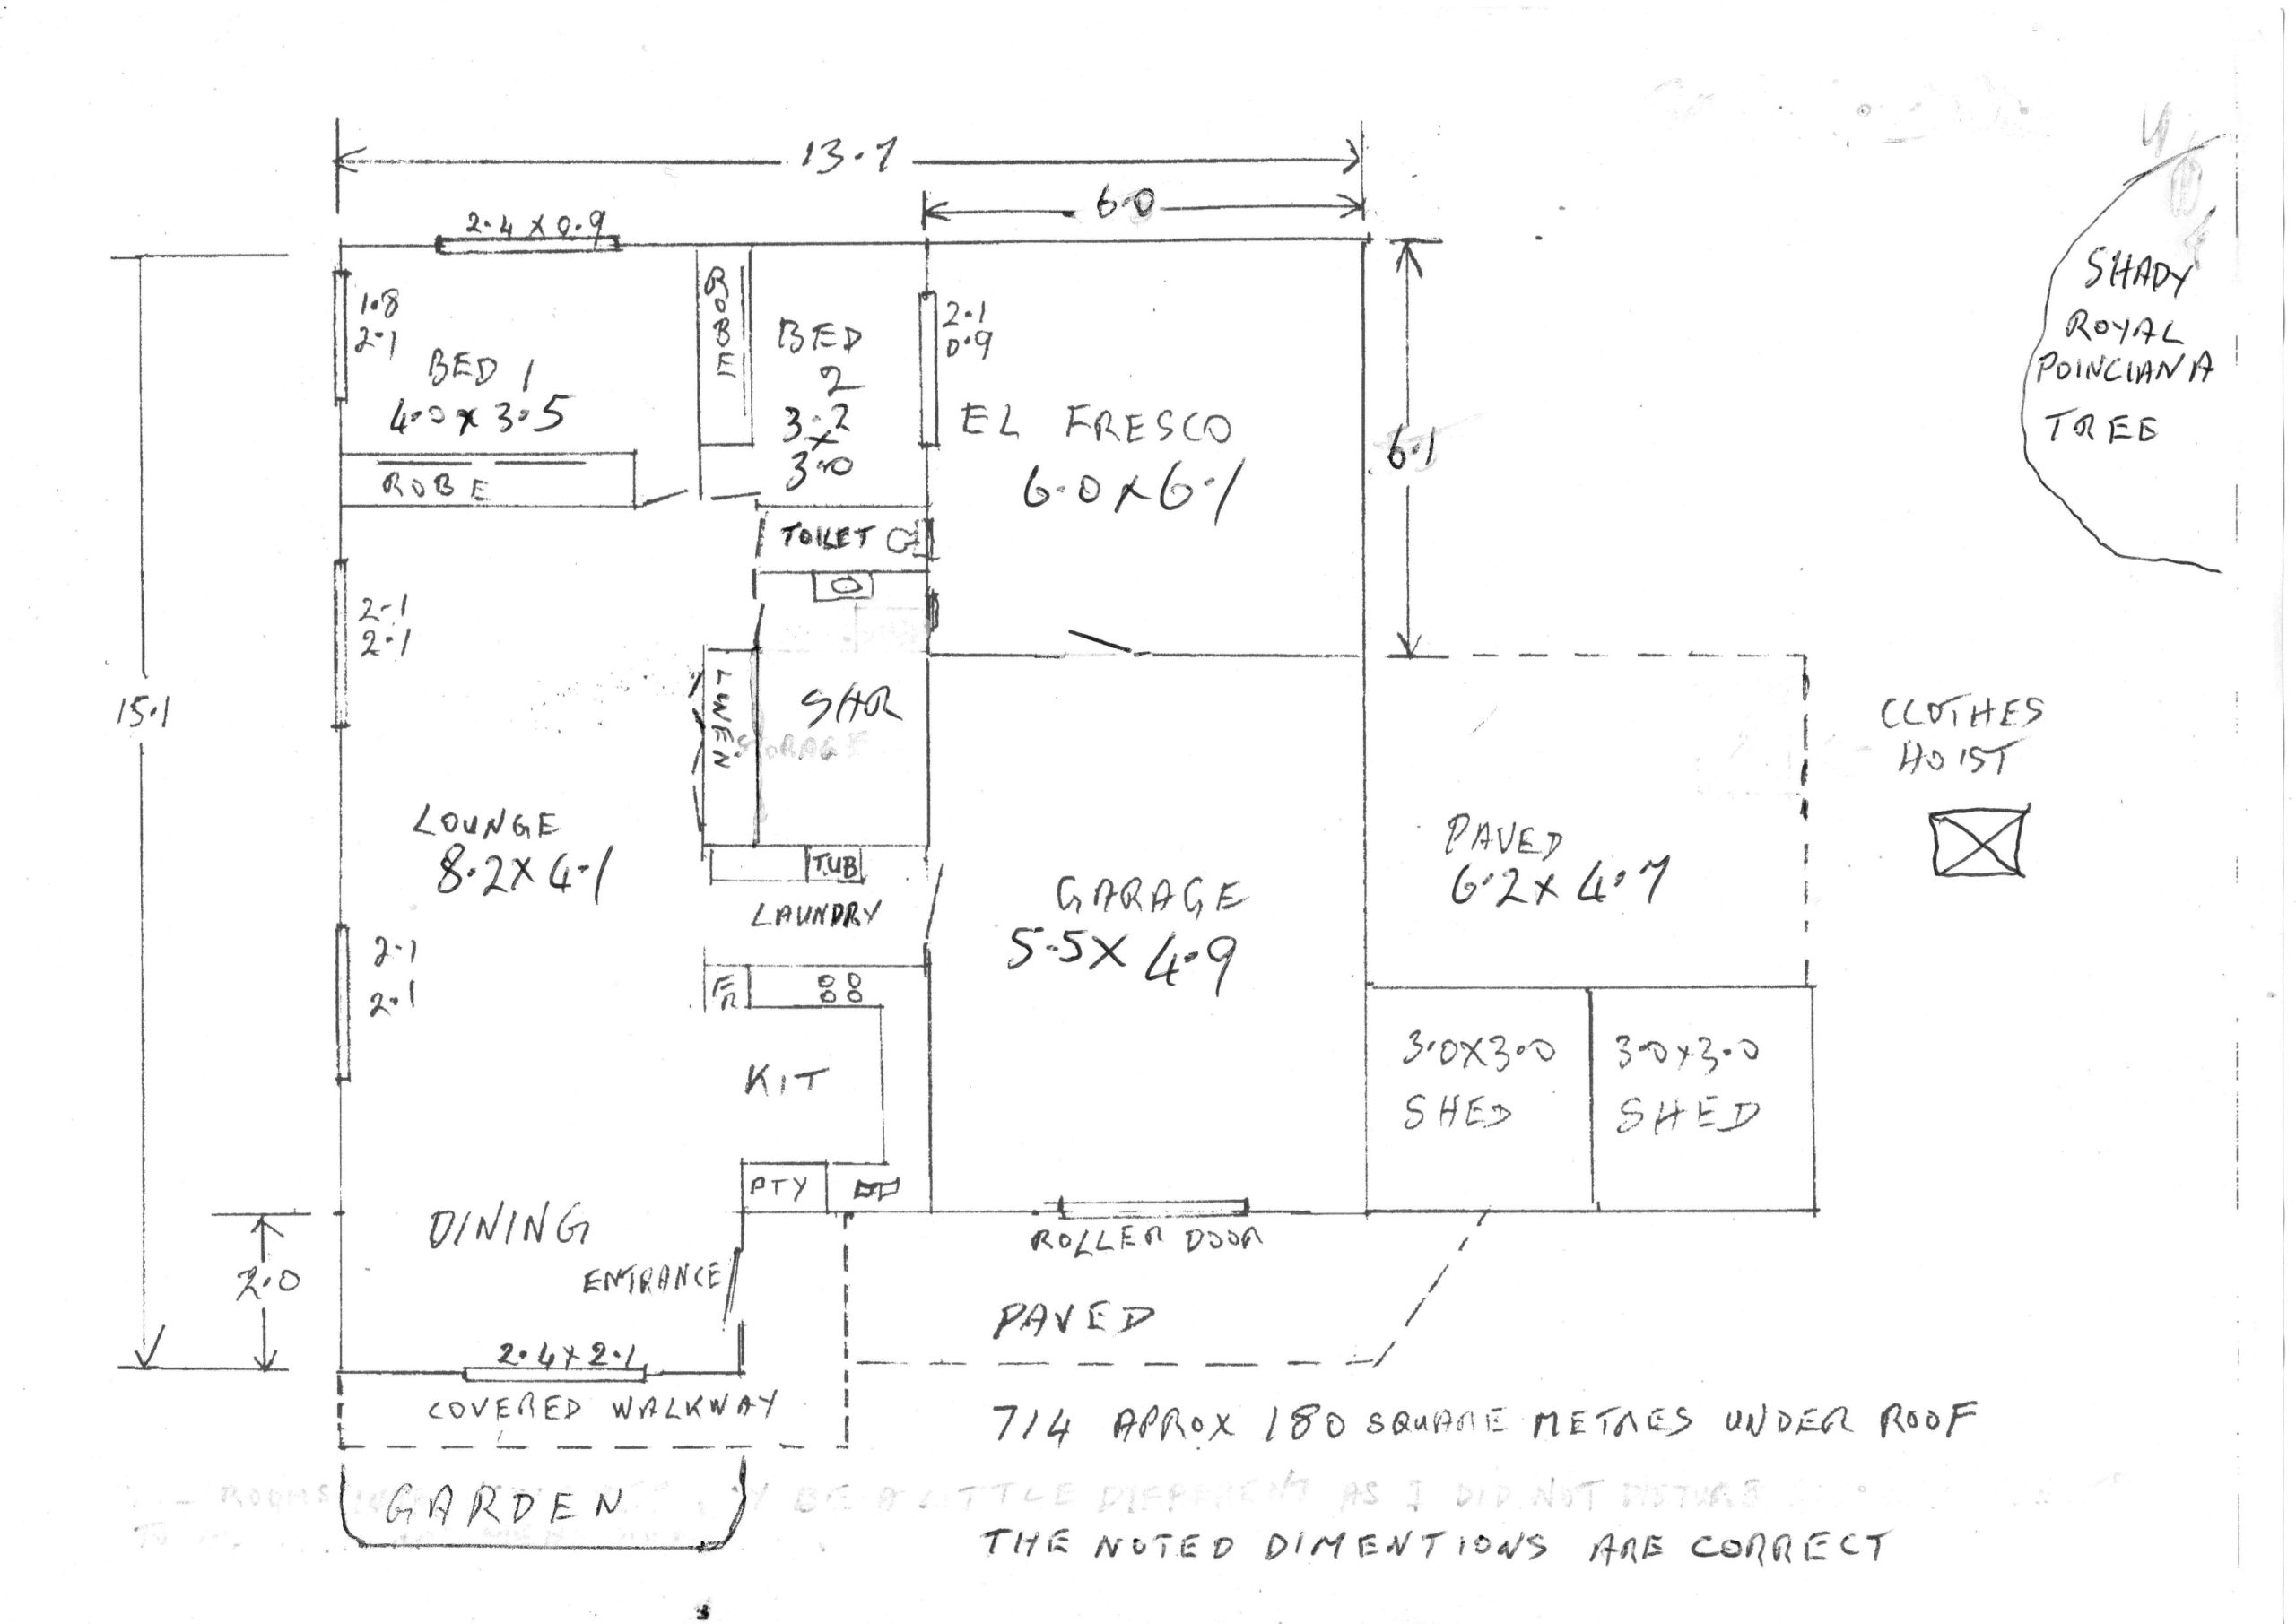 13.7
6.0
2.4 x 0.9
1.8
2.1
BED 1
4.0 x 3.5
ROBE
ROBE
BED
2
3.2
x
3.0
2.1
0.9
EL FRESCO
6.0 x 6.1
6.1
SHADY
ROYAL
POINCIANA
TREE
TOILET
2.1
2.1
15.1
LINEN
SHR
STORAGE
CLOTHES
HOIST
LOUNGE
8.2 x 4.1
TUB
LAUNDRY
GARAGE
5.5 x 4.9
PAVED
6.2 x 4.7
2.1
2.1
FR
KIT
3.0 x 3.0
SHED
3.0 x 3.0
SHED
PTY
DINING
ENTRANCE
2.0
ROLLER DOOR
PAVED
2.4 x 2.1
COVERED WALKWAY
714 APROX 180 SQUARE METRES UNDER ROOF
GARDEN
ROOMS BE A LITTLE DIFFERENT AS I DID NOT
THE NOTED DIMENTIONS ARE CORRECT